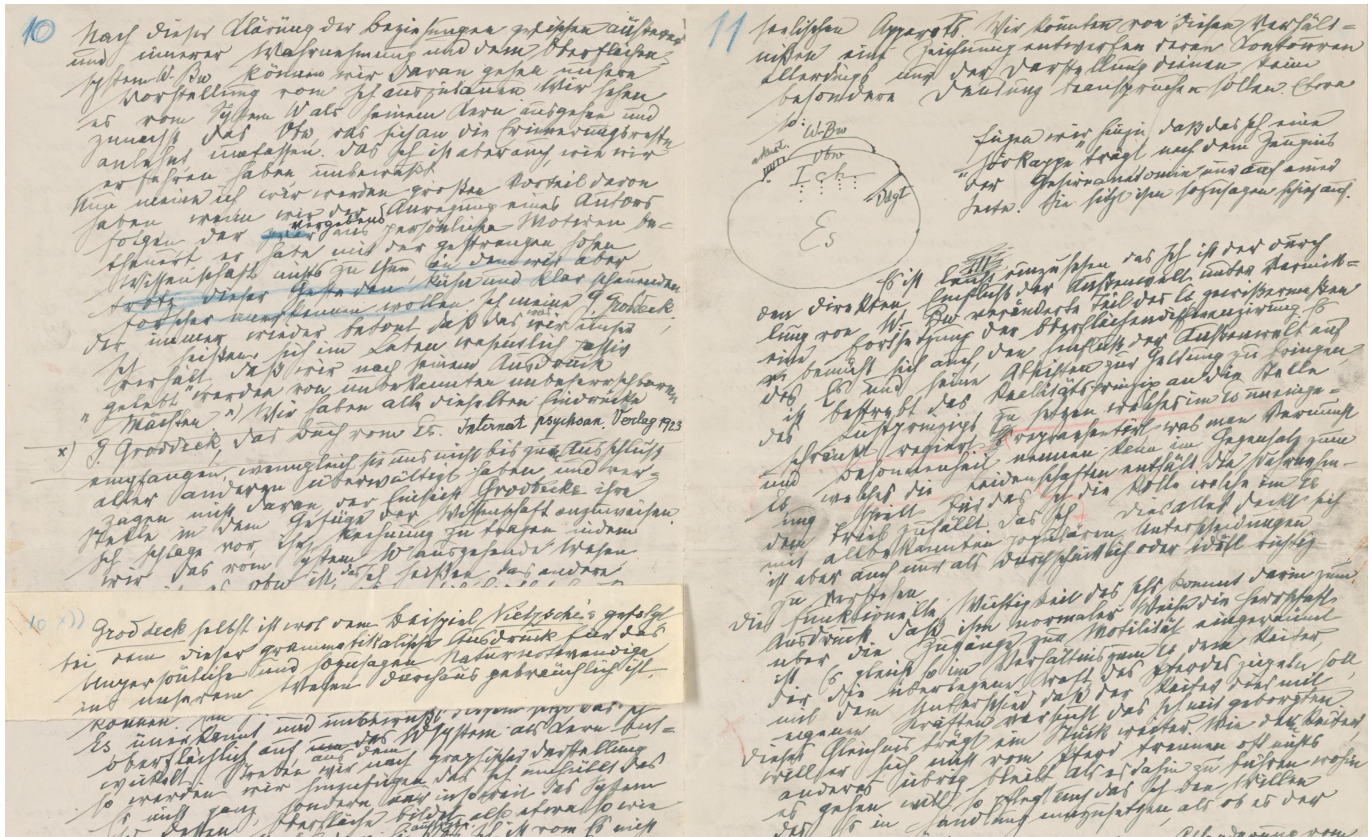 10
Nach dieser Klärung der Beziehungen zwischen äußerer
und innerer Wahrnehmung und dem Oberflächen-
system W-Bw können wir daran gehen unsere
Vorstellung vom Ich auszubauen. Wir sehen
es vom System W als seinem Kern ausgehen und
zunächst das Vbw, das sich an die Erinnerungsreste
anlehnt umfassen. Das Ich ist aber auch, wie wir
erfahren haben unbewußt.
Nun meine ich wir werden großen Vorteil davon
haben wenn wir der Anregung eines Autors
folgen der vergebens aus persönlichen Motiven be-
theuert er habe mit der gestrengen hohen
Wissenschaft nichts zu thun in dem wir aber
trotz dieser
Forscher anerkennen wollen ich meine G. Groddeck
der immer wieder betont daß das was wir unser
Ich heißen sich im Leben wesentlich passiv
verhält, daß wir nach seinem Ausdruck
"gelebt" werden von unbekannten unbeherrschbaren
Mächten x) Wir haben alle dieselben Eindrücke
x) G. Groddeck, Das Buch vom Es. Internat. psychoan. Verlag 1923
empfangen, wenngleich sie uns nicht bis zum Ausschluß
aller anderen überwältigt haben und ver-
zagen nicht daran, der Einsicht Groddecks ihre
Stelle in dem Gefüge der Wissenschaft anzuweisen.
Ich schlage vor, ihr Rechnung zu tragen indem
wir das vom System W ausgehende Wesen
vbw ist, das Ich heißen das andere
10 x))
Groddeck selbst ist wol dem Beispiel Nietzsche's gefolgt
bei dem dieser grammatikalische Ausdruck für das
Unpersönliche und sozusagen Naturnotwendige
in unserem Wesen durchaus gebräuchlich ist.
Es unerkannt und unbewußt, diesem sitzt das Ich
oberflächlich auf, aus dem W-System als Kern ent-
wickelt. Streben wir nach graphischer Darstellung
so werden wir hinzufügen das Ich umhüllt das
Es nicht ganz, sondern nur insoweit das System
dessen Oberfläche bildet, also etwa so wie
11
seelischen Apparats. Wir könnten von diesen Verhält-
nißen eine Zeichnung entwerfen deren Kontouren
allerdings nur der Darstellung dienen keine
besondere Deutung beanspruchen sollen. Etwa
so:
W-Bw
akust.
Vbw
Ich
Vdgt
Es
Fügen wir hinzu, daß das Ich eine
"Hörkappe" trägt nach dem Zeugnis
der Gehirnanatomie nur auf einer
Seite. Sie sitzt ihm sozusagen schief auf.
Es ist leicht einzusehen das Ich ist der durch
den direkten Einfluß der Außenwelt unter Vermitt-
lung von W-Bw veränderte Teil des Es gewißermaßen
eine Fortsetzung der Oberflächendifferenzierung. Es
bemüht sich auch, den Einfluß der Außenwelt auf
das Es und seine Absichten zur Geltung zu bringen,
ist bestrebt das Realitätsprinzip an die Stelle
des Lustprinzips zu setzen welches im Es uneinge-
schränkt regiert.
Ich repräsentirt was man Vernunft
und Besonnenheit nennen kann im Gegensatz zum
Es welches die Leidenschaften enthält. Die Wahrneh-
mung spielt für das Ich die Rolle welche im Es
dem Trieb zufällt. Das Ich
Dies alles deckt sich
mit allbekannten populären Unterscheidungen
ist aber auch nur als durchschnittlich oder ideell richtig
zu verstehen.
Die funktionelle Wichtigkeit des Ichs kommt darin zum
Ausdruck daß ihm normaler Weise die Herrschaft
über die Zugänge zur Motilität eingeräumt
ist. Es gleicht so im Verhältnis zum Es dem Reiter,
der die überlegene Kraft des Pferdes zügeln soll,
mit dem Unterschied daß der Reiter dies mit
eigenen Kräften versucht das Ich mit geborgten.
Dieses Gleichnis trägt ein Stück weiter. Wie dem Reiter,
will er sich nicht vom Pferd trennen oft nichts
anderes übrig bleibt als es dahin zu führen wohin
es gehen will, so pflegt auch das Ich den Willen
des Es in Handlung umzusetzen, als ob es der